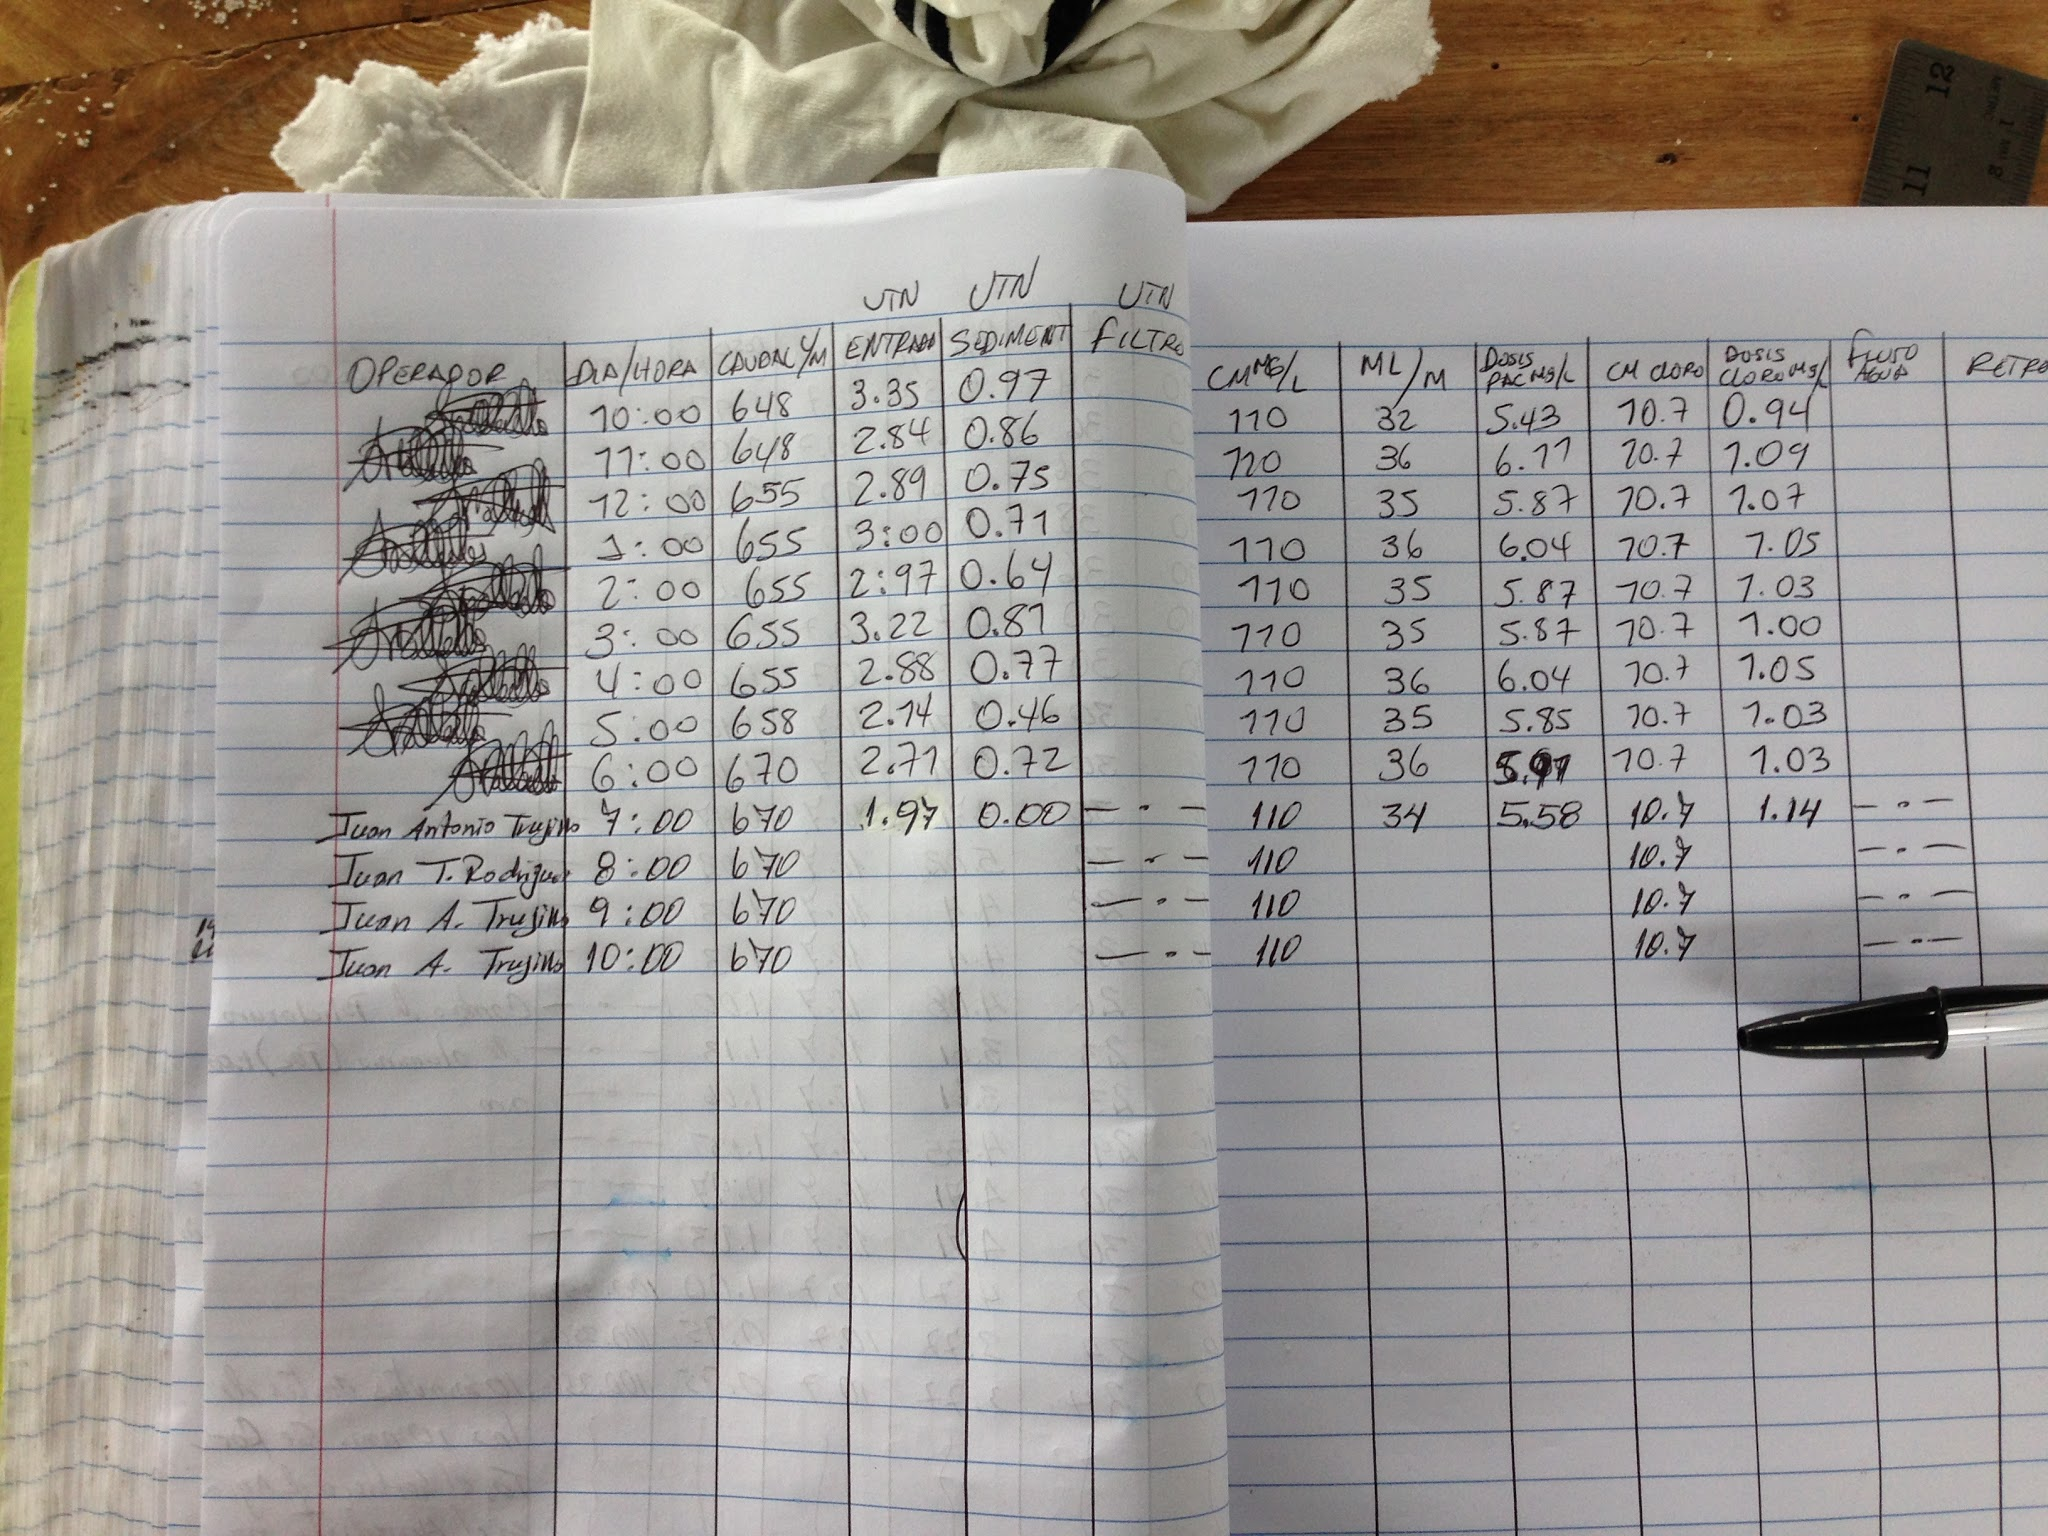 UTN UTN UTN
OPERADOR DIA/HORA CAUDAL L/M ENTRADA SEDIMENT FILTRO CM MG/L ML/M DOSIS PAC MG/L CM CLORO DOSIS CLORO MG/L FLUJO AGUA RETRO
10:00 648 3.35 0.97 110 32 5.43 10.7 0.94
11:00 648 2.84 0.86 110 36 6.11 10.7 1.09
12:00 655 2.89 0.75 110 35 5.87 10.7 1.07
1:00 655 3:00 0.71 110 36 6.04 10.7 1.05
2:00 655 2:97 0.64 110 35 5.87 10.7 1.03
3:00 655 3.22 0.81 110 35 5.87 10.7 1.00
4:00 655 2.88 0.77 110 36 6.04 10.7 1.05
5:00 658 2.14 0.46 110 35 5.85 10.7 1.03
6:00 670 2.71 0.72 110 36 10.7 1.03
Juan Antonio Trujillo 7:00 670 1.97 0.00 — . — 110 34 5.58 10.7 1.14 — . —
Juan T. Rodriguez 8:00 670 — . — 110 10.7 — . —
Juan A. Trujillo 9:00 670 — . — 110 10.7 — . —
Juan A. Trujillo 10:00 670 — . — 110 10.7 — . —
12
11